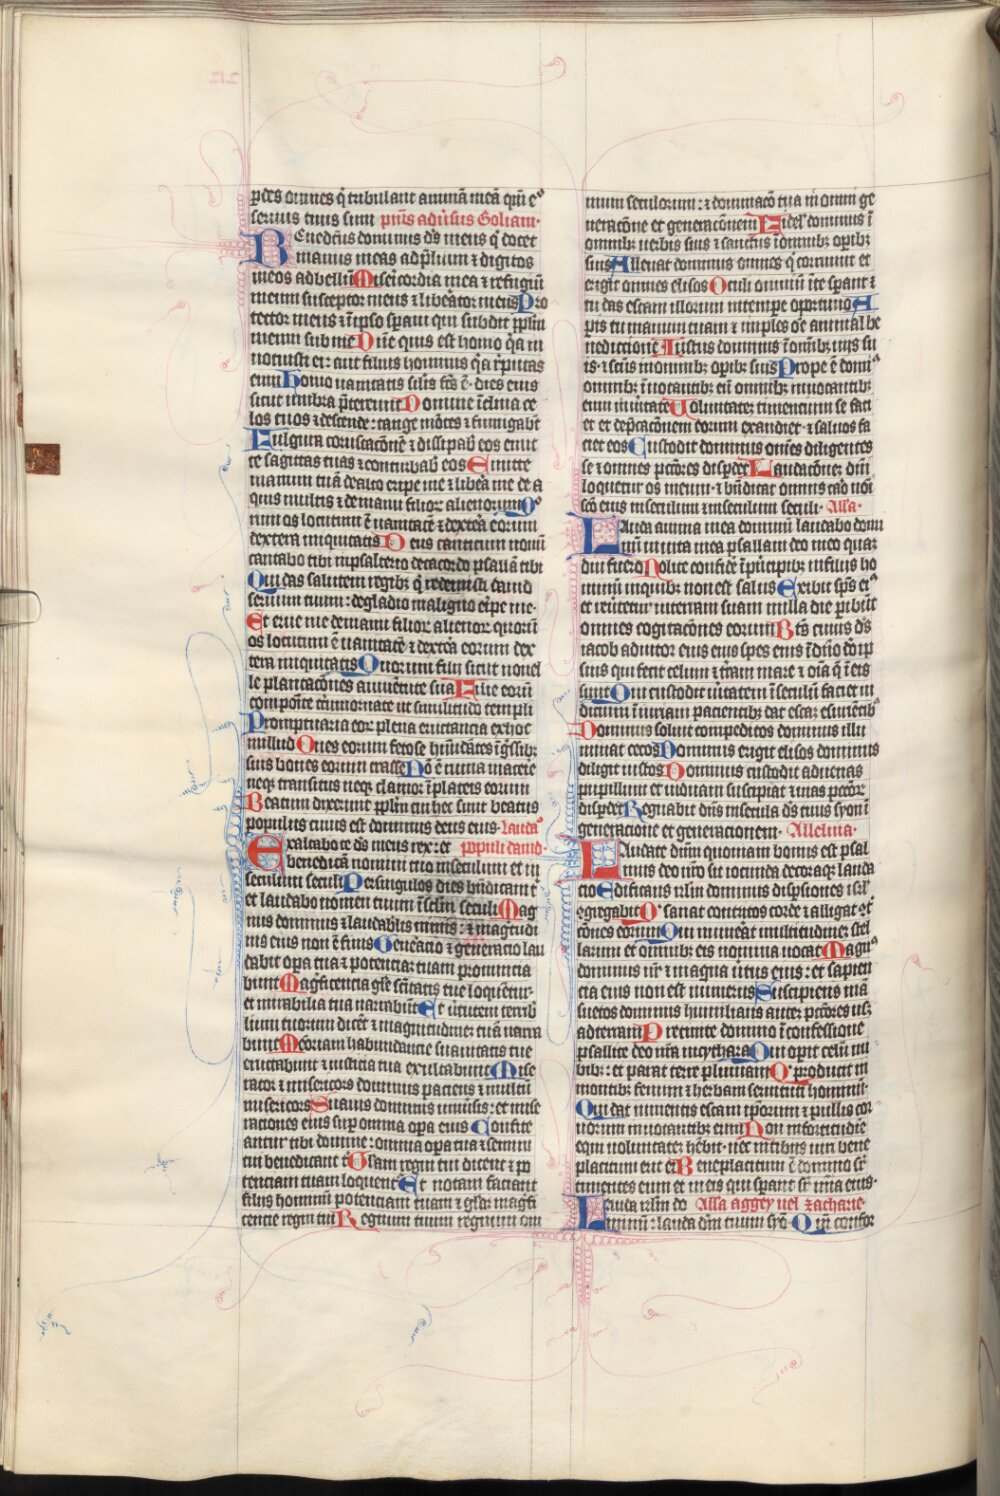 pdes omnes q̇ tribulant animā meā qm̄ e
seruus tuus sum pm̄s adu'sus Goliam·
Benedc̄us dominus ds̄ meus q̇ docet
manus meas ad p̄lium ⁊ digitos
meos ad bellū Misericordia mea ⁊ refugiū
meum susceptor meus ⁊ liberator meus Pro
tector meus ⁊ ī ipso sperauī qui subdit pp̄lm
meum sub me Dn̄e quis est homo q̇a īn
notuisti ei: aut filius hominis q̇a reputas
eum Homo uanitatis similis fc̄s ē· dies eius
sicut umbra p̄tereunt Domine īclina ce
los tuos ⁊ descende: tange mōtes ⁊ fumigabūt
Fulgura coruscacōnē ⁊ dissipab' eos emit
te sagittas tuas ⁊ conturbab' eos Emitte
manum tuā de alto eripe me ⁊ libera me de a
quis multis ⁊ de manu filior alienorum Q°
rum os locutum ē uanitatē ⁊ dextera eorum
dextera iniquitatis Deus canticum nouū
cantabo tibi in psalterio decacordo psallā tibi
Qui das salutem regib; q̇ redemisti dauid
seruum tuum: de gladio maligno eripe me·
Et erue me de manu filior alienor quorū
os locutum ē uanitatē ⁊ dextera eorum dex
tera iniquitatis Quorum filii sicut nouel
le plantacōnes a iuuentute sua Filie eorū
composite circumornate ut similitudo templi
Promptuaria eor plena eructancia ex hoc
in illud Oues eorum fetose habūdātes ī gressib;
suis boues eorum crasse Nō ē ruina macerie
neq; transitus neq; clamor ī plateis eorum
Beatum dixerunt pp̄lm cui hec sunt beatus
populus cuius est dominus deus eius· lauda°
Exaltabo te ds̄ meus rex: et pp̄uli dauid·
benedicā nomini tuo in seculum et in
seculum seculi Per singulos dies bn̄dicam t'
et laudabo nomen tuum ī sclm̄ seculi Mag
nus dominus ⁊ laudabilis nimis: ⁊ magnitudi
nis eius non ē finis Generacio ⁊ generacio lau
dabit opa tua ⁊ potencia; tuam pronuncia
bunt Magnificencia; gl'e scitatis tue loquentur·
et mirabilia tua narrabunt Et u'tutem terrib
lium tuorum dicēt ⁊ magnitudine; tuā narra
bunt Memoriam habundancie suauitatis tue
eructabunt ⁊ iusticia tua exultabunt Mise
rator ⁊ misericors dominus paciens ⁊ multū
misericors Suauis dominus uniuersis: et mise
raciones eius sup omnia opa eius Confite
antur tibi domine: omnia opa tua ⁊ sc̄i
tui benedicant t' Gloriam regni tui dicent ⁊ po
tenciam tuam loquentr Et notam faciant
filiis hominū potenciam tuam ⁊ gl'iam magnifi
cencie regni tui Regnum tuum regnum om
nium seculorum: ⁊ dominacō tua in omni ge
neracōne et generacōnem Fidelis dominus ī
omnib; uerbis suis ⁊ sanctus ī omnib; operib;
suis Alleuat dominus omnes q̇ corruunt et
erigit omnes elisos Oculi omniū ī te sperant ⁊
tu das escam illorum in tempe oportuno A
peris tu manum tuam ⁊ imples oē animal be
nedictione Iustus dominus ī omnib; uiis su
is· ⁊ sc̄tus ī omnib; opib; suis Prope ē domin'
omnib; īuocantib; eū omnib; inuocantib;
eum in u'itate Voluntate; timencium se faci
et et depcacōnem eorum exaudiet· ⁊ saluos fa
ciet eos Custodit dominus omēs diligentes
se ⁊ omnes pctōres dispdet Laudacōne; dm̄i
loquetur os meum· ⁊ bn̄dicat omnis caro nōi
sc̄o eius in seculum ⁊ in seculum seculi· Alla·
Lauda anima mea dominū laudabo domi
num in uita mea psallam deo meo quam
diu fuero Nolite confide' ī principib; in filiis ho
minū in quib; non est salus Exibit sp̄s ei°
et reuertetur in terram suam in illa die p̄ibunt
omnes cogitacōnes eorum Bt̄s cuius ds̄
iacob adiutor eius spes eius ī dn̄o deo ip
sius qui fecit celum ⁊ terram mare ⁊ oīa q̇ ī eis
sunt Qui custodit u'itatem ī seculū facit iu
dicium ī iuriam pacientib; dat esca; esurientib;
Dominus soluit compeditos dominus illu
minat cecos Dominus erigit elisos dominus
diligit iustos Dominus custodit aduenas
pupillum et uiduam suscipiet ⁊ uias pctōr'
dispdet Regnabit dn̄s in secula ds̄ tuus syon ī
generacione et generacionem· Alleluia·
Laudate dn̄m quoniam bonus est psal
mus deo nr̄o sit iocunda decoraq; lauda
cio Edificans irl̄m dominus dispersiones isr̄l'
ogregabit Q' sanat contritos corde ⁊ alligat ot̄
cōnes eorum Qui numerat multitudine; stel
larum et omnib; eis nomina uocat Magn°
dominus nr̄ ⁊ magna u'tus eius: et sapien
cia eius non est numerus Suscipiens mā
suetos dominus humilians aute; pctōres us;
ad terram Precinite domino ī confessione
psallite deo nr̄o in cythara Qui operit celū nu
bib;: et parat terre pluuiam Q' producit in
montib; fenum ⁊ herbam seruituti hominū·
Qui dat iumentis escam ip̄orum ⁊ pullis cor
uorum inuocantib; eum Non in fortitudīe
equi uoluntate; hēbit· nec in tibiis uiri bene
placitum erit ei Beneplacitum ē domino sr̄
timentes eum et in eis qui sperant sr̄ mīa eius·
Lauda irl̄m do Alla aggey uel zacharie·
minū: lauda dm̄ tuum syō Qm̄ confor